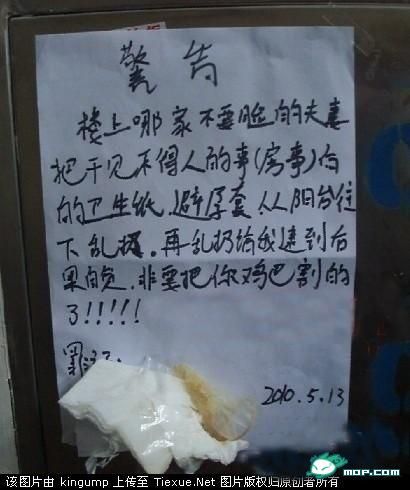 警告
楼上哪家不要脸的夫妻
把干见不得人的事(房事)后
的卫生纸、避孕套、从阳台往
下乱扔.再乱扔给我逮到后
果自负.非要把你鸡巴割的
了!!!!!
2010.5.13
MOP.COM
该图片由 kingump 上传至 Tiexue.Net 图片版权归原创者所有